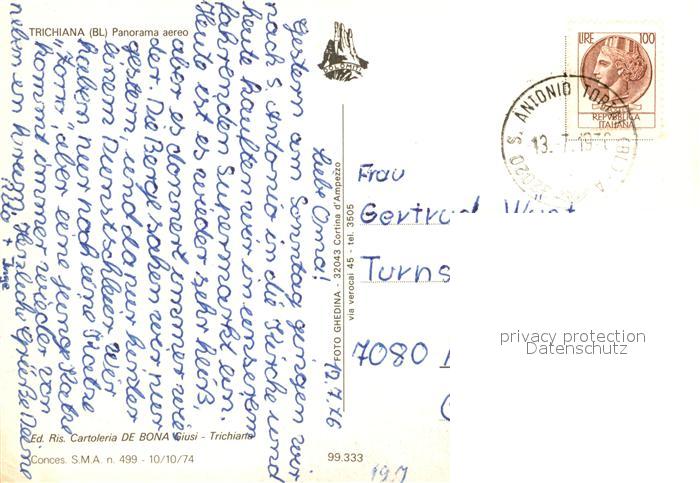 TRICHIANA (BL) Panorama aereo
DOLOMITI
LIRE 100
REPVBBLICA
ITALIANA
S. ANTONIO TORT
32020
13.-7.197
12.7.76
Liebe Oma!
Gestern am Sonntag gingen wir
nach S. Antonio in die Kirche und
heute kauften wir in unserem
fahrenden Supermarkt ein.
Heute ist es wieder sehr heiß,
aber es donnert immer wie
der. Die Berge sahen wir nur
gestern, und da nur hinter
einem Dunstschleier. Wir
haben nur noch eine Katze
"Zorro", aber eine junge Katze
kommt immer wieder von
neben an herum. Herzliche Grüße Deine
+ Inge
FOTO GHEDINA - 32043 Cortina d'Ampezzo
via verocai 45 - tel. 3505
Frau
Gertrud
Turns
7080
privacy protection
Datenschutz
Ed. Ris. Cartoleria DE BONA Giusi - Trichiana
Conces. S.M.A. n. 499 - 10/10/74
99.333